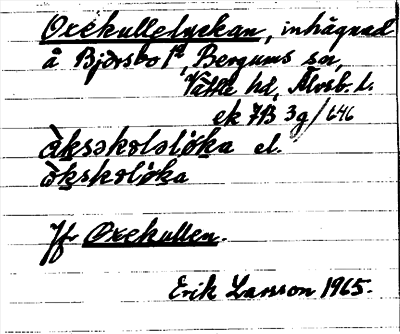 Oxekullelyckan, inhägnad
å Bjärsbo 1²⁄, Bergums sn,
Vättle hd, Älvsb. l.
ek 7B 3g/646
el.
Jfr Oxekullen.
Erik Larsson 1965.